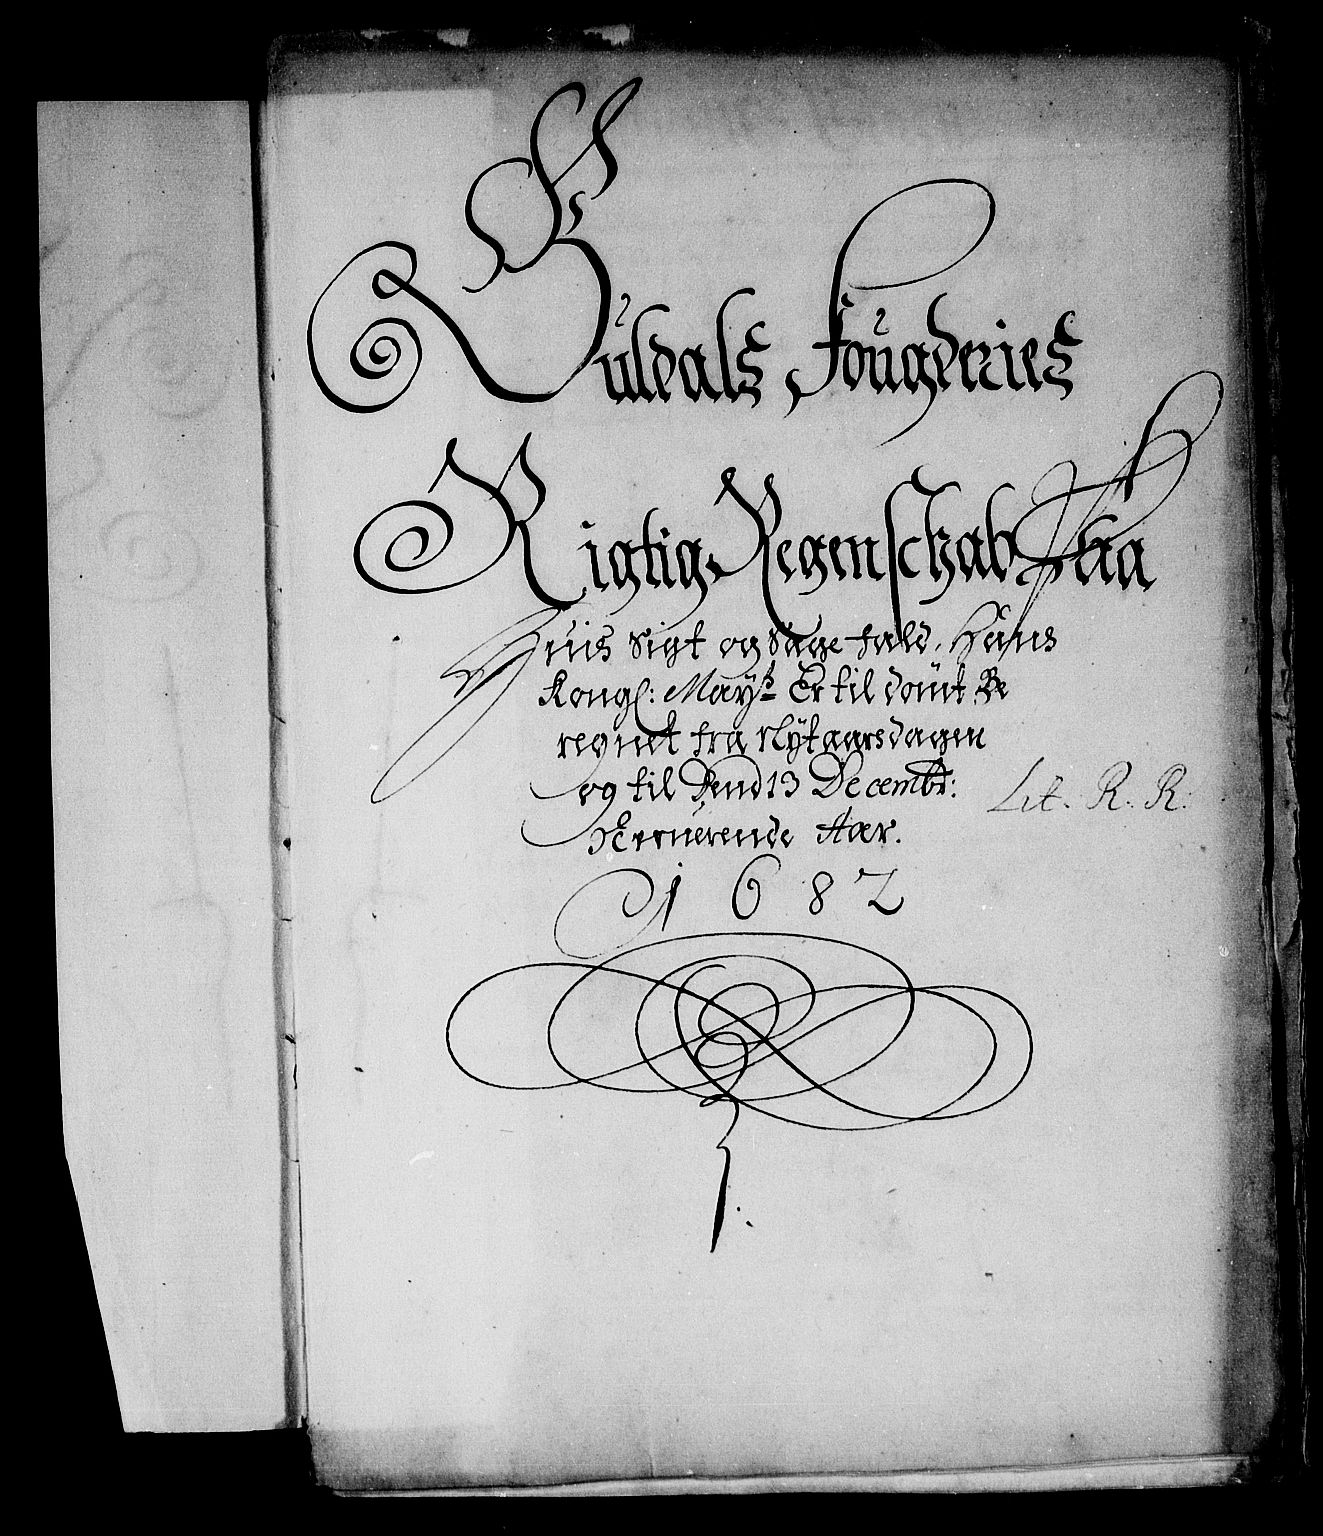 Guldals Fougderies
Rigtig Regenschab Paa
Huis Sigt og Sage fald, Hans
Kongl: Mayᵗˢ Er tildömt Be
regnet fra Nÿtaarsdagen
og til Dend 13 Decembr:
Nerverende Aar.
1682
Lit. R. R.